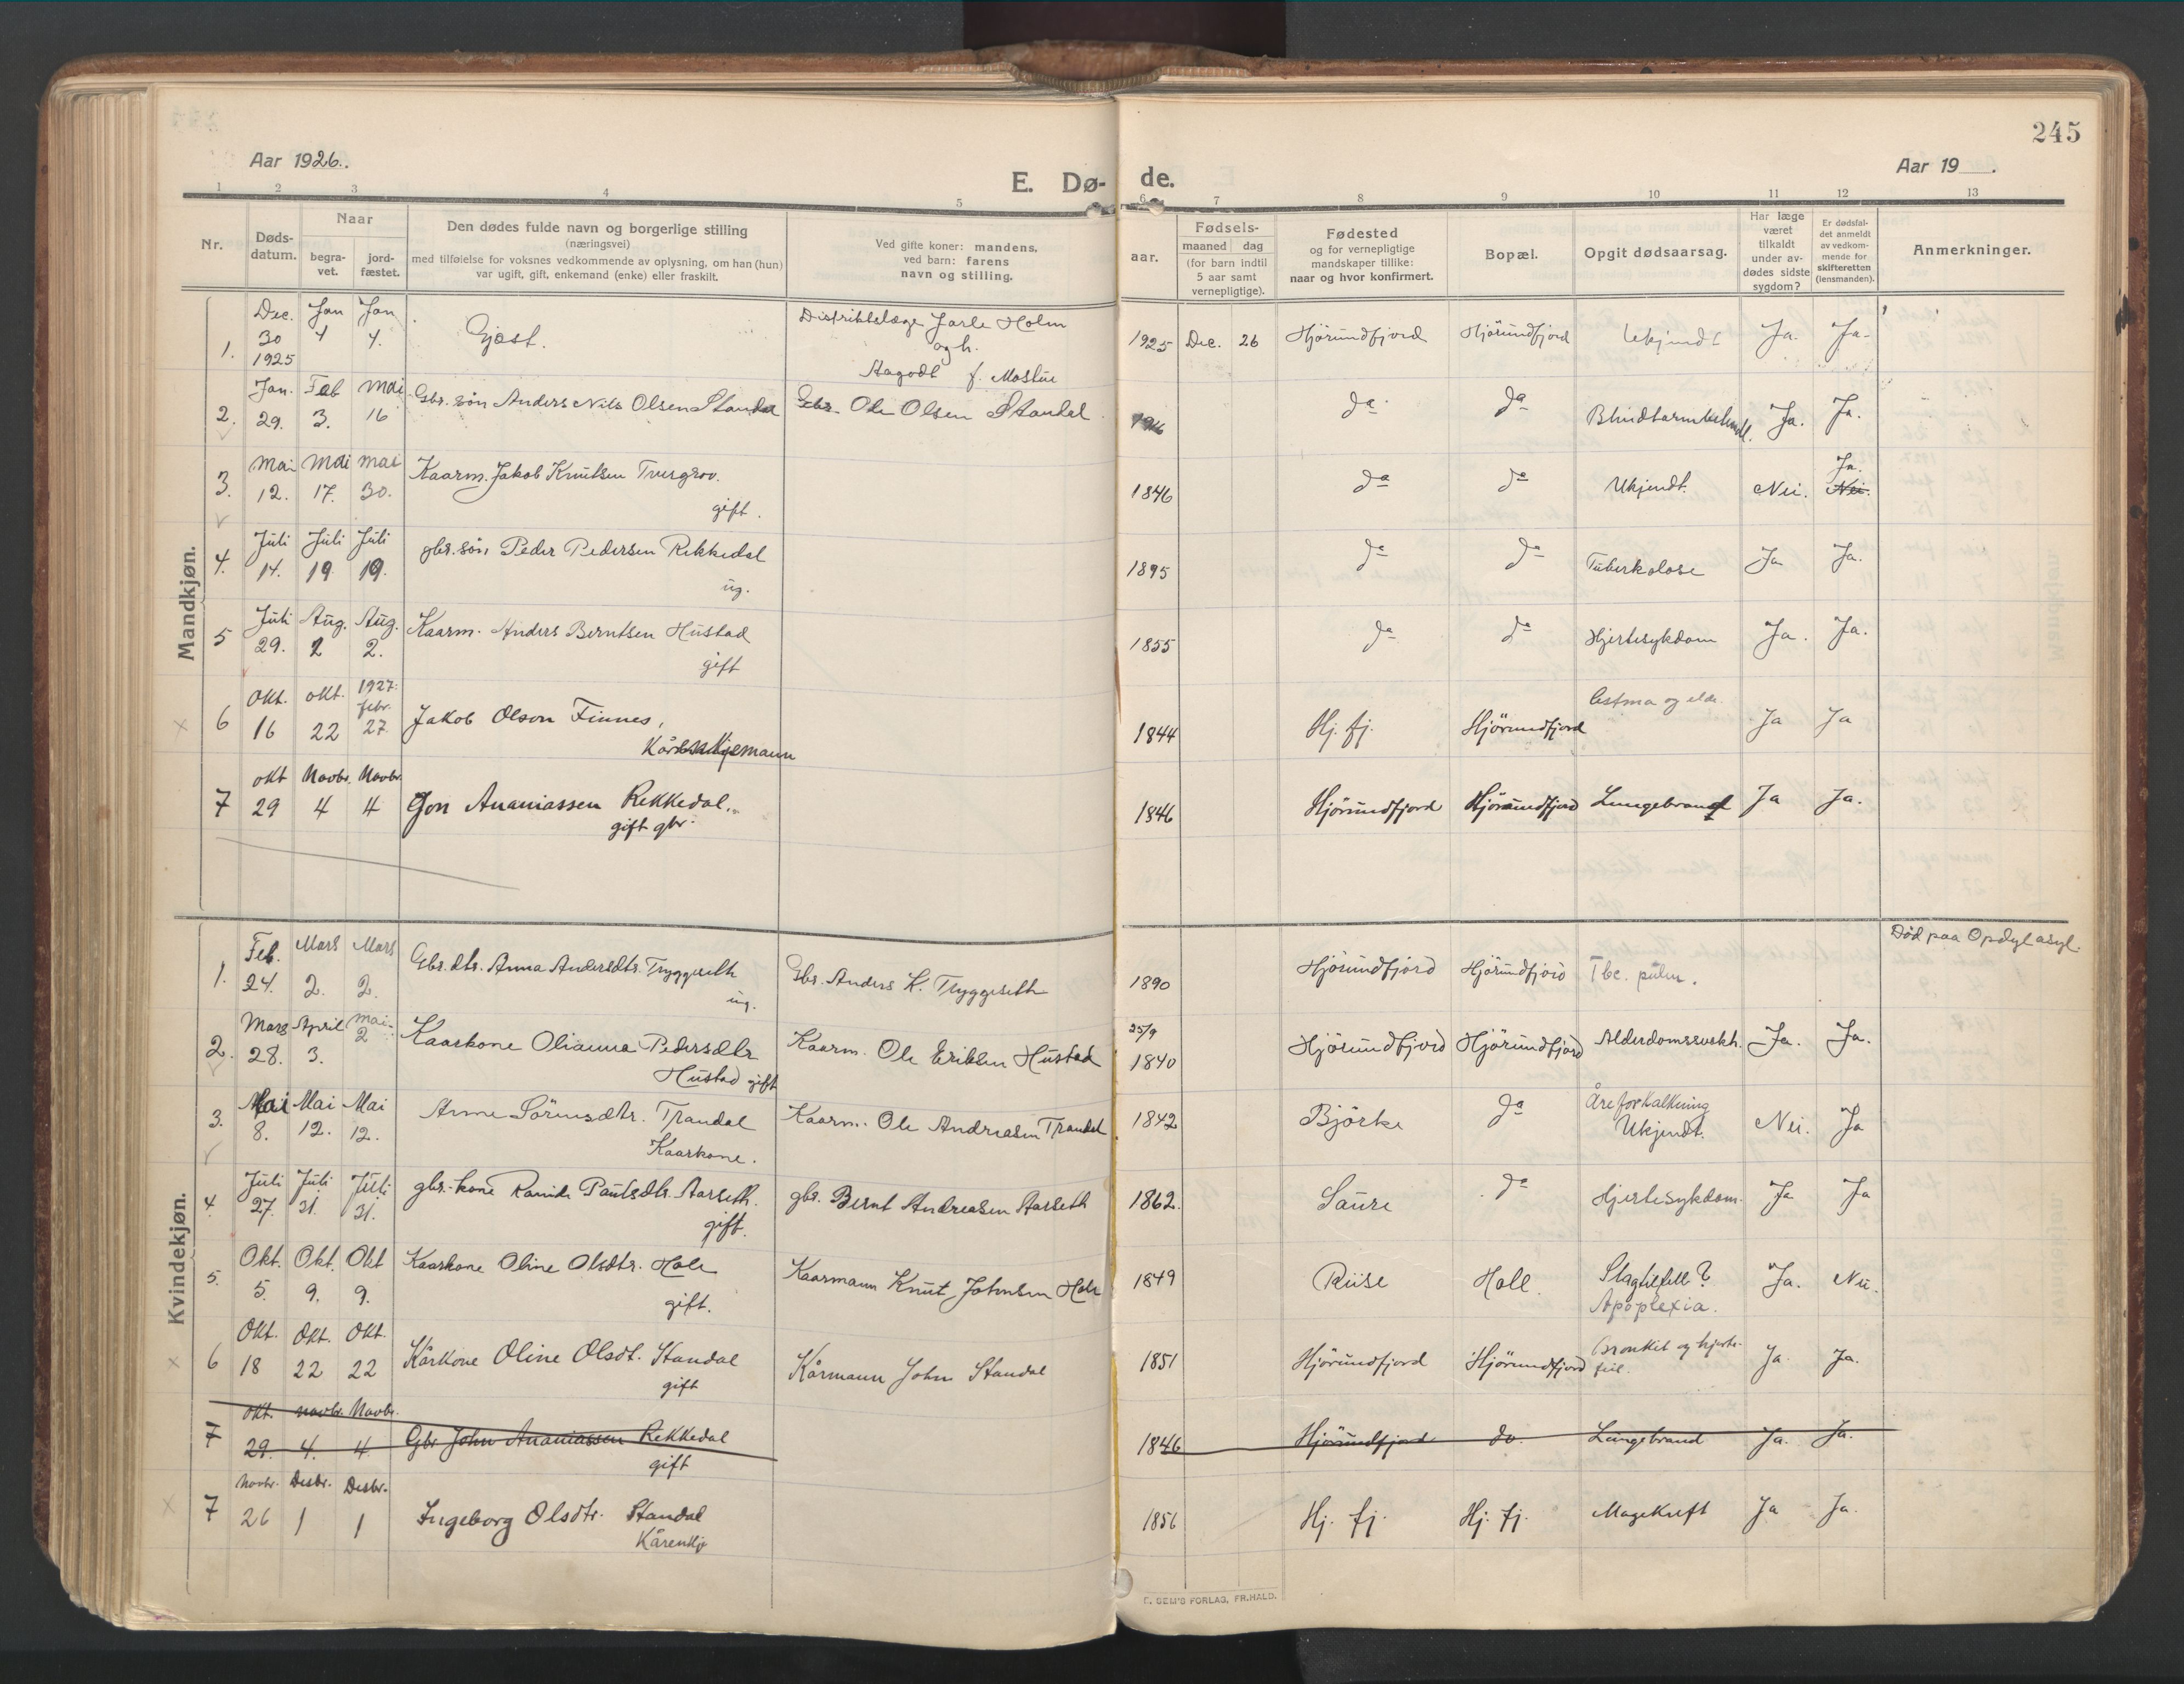 245
Aar 1926.
Aar 19
E. Dø- de.
1 2 3 4 5 6 7 8 9 10 11 12 13
Nr.
Døds-
datum.
Naar
begra-
vet.
jord-
fæstet.
Den dødes fulde navn og borgerlige stilling
(næringsvei)
med tilføielse for voksnes vedkommende av oplysning, om han (hun)
var ugift, gift, enkemand (enke) eller fraskilt.
Ved gifte koner: mandens,
ved barn: farens
navn og stilling.
Fødsels-
aar.
maaned dag
(for barn indtil
5 aar samt
vernepligtige).
Fødested
og for vernepligtige
mandskaper tillike:
naar og hvor konfirmert.
Bopæl.
Opgit dødsaarsag.
Har læge
været
tilkaldt
under av-
dødes sidste
sygdom?
Er dødsfal-
det anmeldt
av vedkom-
mende for
skifteretten
(lensmanden).
Anmerkninger.
Mandkjøn.
1. Dec. 30 1925 Jan 4 Jan 4. Gjest. Distriktslæge Jarle Holm
og h.
Aagodt f. Mostue 1925 Dec. 26 Hjörundfjord Hjörundfjord Ukjendt Ja. Ja-
2. Jan. 29. Feb 3. Mai 16 Gbr. søn Anders Nils Olsen Standal Gbr. Ole Olsen Standal da da Ja. Ja.
3. Mai 12. Mai 17. Mai 30. Kaarm. Jakob Knutsen Tvergrov.
gift. 1846 da da Ukjendt. Nei. Ja.
Nei.
4. Juli 14. Juli 19 Juli 19. gbr. søn Peder Pedersen Rekkedal
ug. 1895 da da Tuberkolose Ja Ja.
5 Juli 29. Aug. 2 Aug. 2. Kaarm. Anders Berntsen Hustad
gift 1855 da da Hjertesykdom Ja. Ja.
6 Okt. 16 okt. 22 1927: febr. 27 Jakob Olson Finnes,
1844 Hj. fj. Hjörundfjord Astma og elde. Ja Ja
7 okt 29 Novbr. 4 Novbr. 4 Jon Ananiassen Rekkedal.
gift gbr. 1846 Hjörundfjord Hjörundfjord Lungebrand Ja Ja.
Kvindekjøn.
1. Feb. 24. Mars 2. Mars 2. Gbr. dtr. Anna Andersdtr. Tryggeseth
ug. Gbr. Anders K. Tryggeseth 1890 Hjörundfjord Hjörundfjord Tbc. pulm. Død paa Opdyl asyl.
2. Mars 28. April 3. Mai 2 Kaarkone Olianna Pedersdtr
Hustad gift Kaarm. Ole Eriksen Hustad 25/9 1840 Hjörundfjord Hjörundfjord Alderdomssvekh. Ja. Ja.
3. Mai 8. Mai 12. Mai 12. Anne Sörensdtr. Trandal
Kaarkone. Kaarm. Ole Andreasen Trandal 1842 Björke da Åreforkalkning
Ukjendt. Nei. Ja
4. Juli 27. Juli 31. Juli 31. gbr. kone Paulsdtr. Aarseth.
gift. gbr. Bernt Andreasen Aarseth 1862. Saure da Hjertesykdom. Ja Ja
5. Okt. 5. Okt. 9. Okt 9. Kaarkone Oline Olsdtr. Hole
gift. Kaarmann Knut Johnsen Hole 1849 Riise Hole. Slagtilfelle?
Apoplexia. Ja. Nei.
6 Okt. 18 Okt. 22 Okt. 22 Kårkone Oline Olsdt. Standal
gift Kårmann John Standal 1851 Hjörundfjord Hjörundfjord Bronkit og hjerte-
feil. Ja. Ja.
7 okt. 29. Novbr. 4. Novbr. 4. Gbr. John Ananiassen Rekkedal
gift 1846 Hjörundfjord do. Lungebrand Ja. Ja.
7 Novbr. 26 Desbr. 1 Desbr. 1 Ingeborg Olsdtr. Standal
Kårenkje 1856 Hj. fj. Hj. fj. Magekreft Ja Ja.
E. SEM'S FORLAG, FR.HALD.